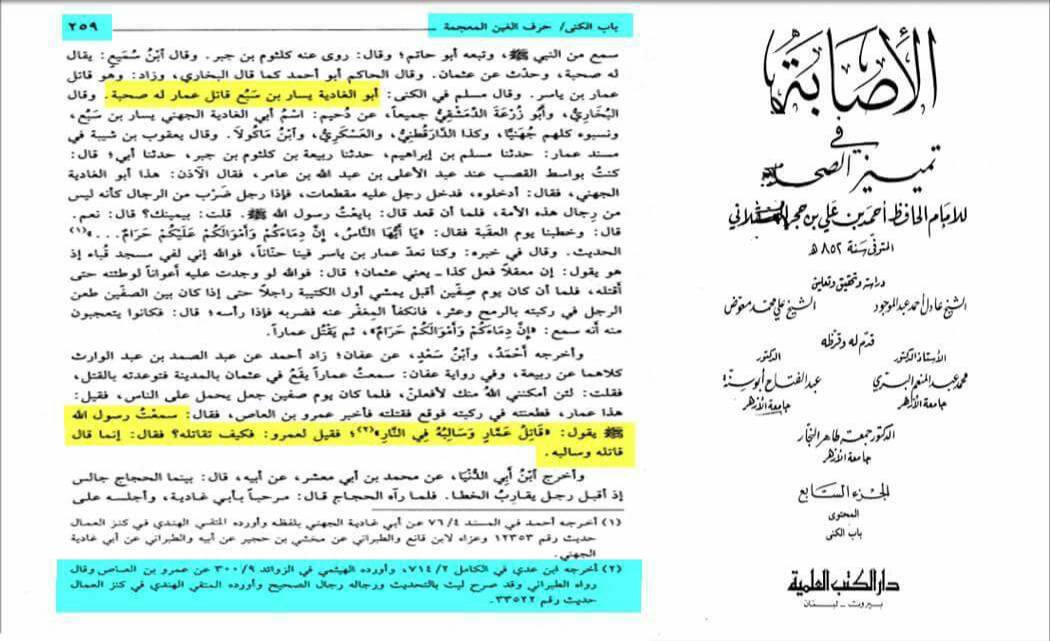 باب الكنى/ حرف الغين المعجمة
٢٥٩
سمع من النبي ﷺ، وتبعه أبو حاتم؛ وقال: روى عنه كلثوم بن جبر. وقال ٱبْنُ سُمَيعٍ: يقال
له صحبة، وحدّث عن عثمان. وقال الحاكم أبو أحمد كما قال البخاري، وزاد: وهو قاتل
عمار بن ياسر. وقال مسلم في الكنى: أبو الغادية يسار بن سَبُع قاتل عمار له صحبة. وقال
البُخَارِيُّ، وأبُو زُرْعَةَ الدِّمَشْقِيُّ جميعاً، عن دُحيم: اسْمُ أبي الغادية الجهني يسار بن سَبُع،
ونسبوه كلهم جُهَنِيًّا، وكذا الدَّارَقطْنِيُّ، والعَسْكَرِيُّ، وٱبْنُ مَاكُولاَ. وقال يعقوب بن شيبة في
مسند عمار: حدثنا مسلم بن إبراهيم، حدثنا ربيعة بن كلثوم بن جبر، حدثنا أبي؛ قال:
كنتُ بواسط القصب عند عبد الأعلى بن عبد الله بن عامر، فقال الآذن: هذا أبو الغادية
الجهني، فقال: أدخلوه، فدخل رجل عليه مقطعات، فإذا رجل ضَرْب من الرجال كأنه ليس
من رجال هذه الأمة، فلما أن قعد قال: بايعْتُ رسول الله ﷺ. قلت: بيمينك؟ قال: نعم.
قال: وخطبنا يوم العقبة فقال: «يَا أَيُّهَا النَّاسُ، إِنَّ دِمَاءَكُمْ وَأَمْوَالَكُمْ عَلَيْكُمْ حَرَامٌ...»(١)
الحديث. وقال في خبره: وكنا نعدّ عمار بن ياسر فينا حنّاناً، فوالله إني لفي مسجد قُباء إذ
هو يقول: إن معقلاً فعل كذا ـ يعني عثمان؛ قال: فوالله لو وجدت عليه أعواناً لوطئته حتى
أقتله، فلما أن كان يوم صِفّين أقبل يمشي أول الكتيبة راجلاً حتى إذا كان بين الصفّين طعن
الرجل في ركبته بالرمح وعثر، فانكفأ المِغْفَر عنه فضربه فإذا رأسه؛ قال: فكانوا يتعجبون
منه أنه سمع: «إِنَّ دِمَاءَكُمْ وَأَمْوَالَكُمْ حَرَامٌ»، ثم يَقْتُل عماراً.
وأخرجه أَحْمَدُ، وٱبْنُ سَعْدٍ، عن عفان؛ زاد أحمد عن عبد الصمد بن عبد الوارث
كلاهما عن ربيعة، وفي رواية عفان: سمعتُ عماراً يقَعُ في عثمان بالمدينة فتوعدته بالقتل،
فقلت: لئن أمكنني اللهُ منك لأفعلنّ، فلما كان يوم صفين جعل يحمل على الناس، فقيل:
هذا عمار، فطعنته في ركبته فوقع فقتلته فأخبر عمرو بن العاص، فقال: سمعتُ رسول الله
ﷺ يقول: «قَاتِلُ عَمَّارٍ وَسَالِبُهُ فِي النَّارِ»(٢)؛ فقيل لعمرو: فكيف تقاتله؟ فقال: إنما قال
قاتله وسالبه.
وأخرج ٱبْنُ أَبِي الدُّنْيَا، عن محمد بن أبي معشر، عن أبيه، قال: بينما الحجاج جالس
إذ أقبل رجل يقارِبُ الخطا. فلما رآه الحجاج قال: مرحباً بأبي غادية، وأجلسه على
(١) أخرجه أحمد في المسند ٧٦/٤ عن أبي غادية الجهني بلفظه وأورده المتقي الهندي في كنز العمال
حديث رقم ١٢٣٥٣ وعزاه لابن قانع والطبراني عن مخشي بن حجير عن أبيه والطبراني عن أبي غادية
الجهني.
(٢) أخرجه ابن عدي في الكامل ٧١٤/٢، وأورده الهيثمي في الزوائد ٣٠٠/٩ عن عمرو بن العاص وقال
رواه الطبراني وقد صرح ليث بالتحديث ورجاله رجال الصحيح وأورده المتقي الهندي في كنز العمال
حديث رقم ٣٣٥٢٢.
الأصابة
في
تمييز الصحابة
للإمام الحافظ أحمد بن علي بن حجر العسقلاني
المتوفى سنة ٨٥٢ هـ
دراسة وتحقيق وتعليق
الشيخ عادل أحمد عبد الموجود الشيخ علي محمد معوض
قدم له وقرظه
الأستاذ الدكتور الدكتور
محمد عبد المنعم البري عبد الفتاح أبو سنة
جامعة الأزهر جامعة الأزهر
الدكتور جمعة طاهر النجار
جامعة الأزهر
الجزء السابع
المحتوى
باب الكنى
دار الكتب العلمية
بيروت - لبنان